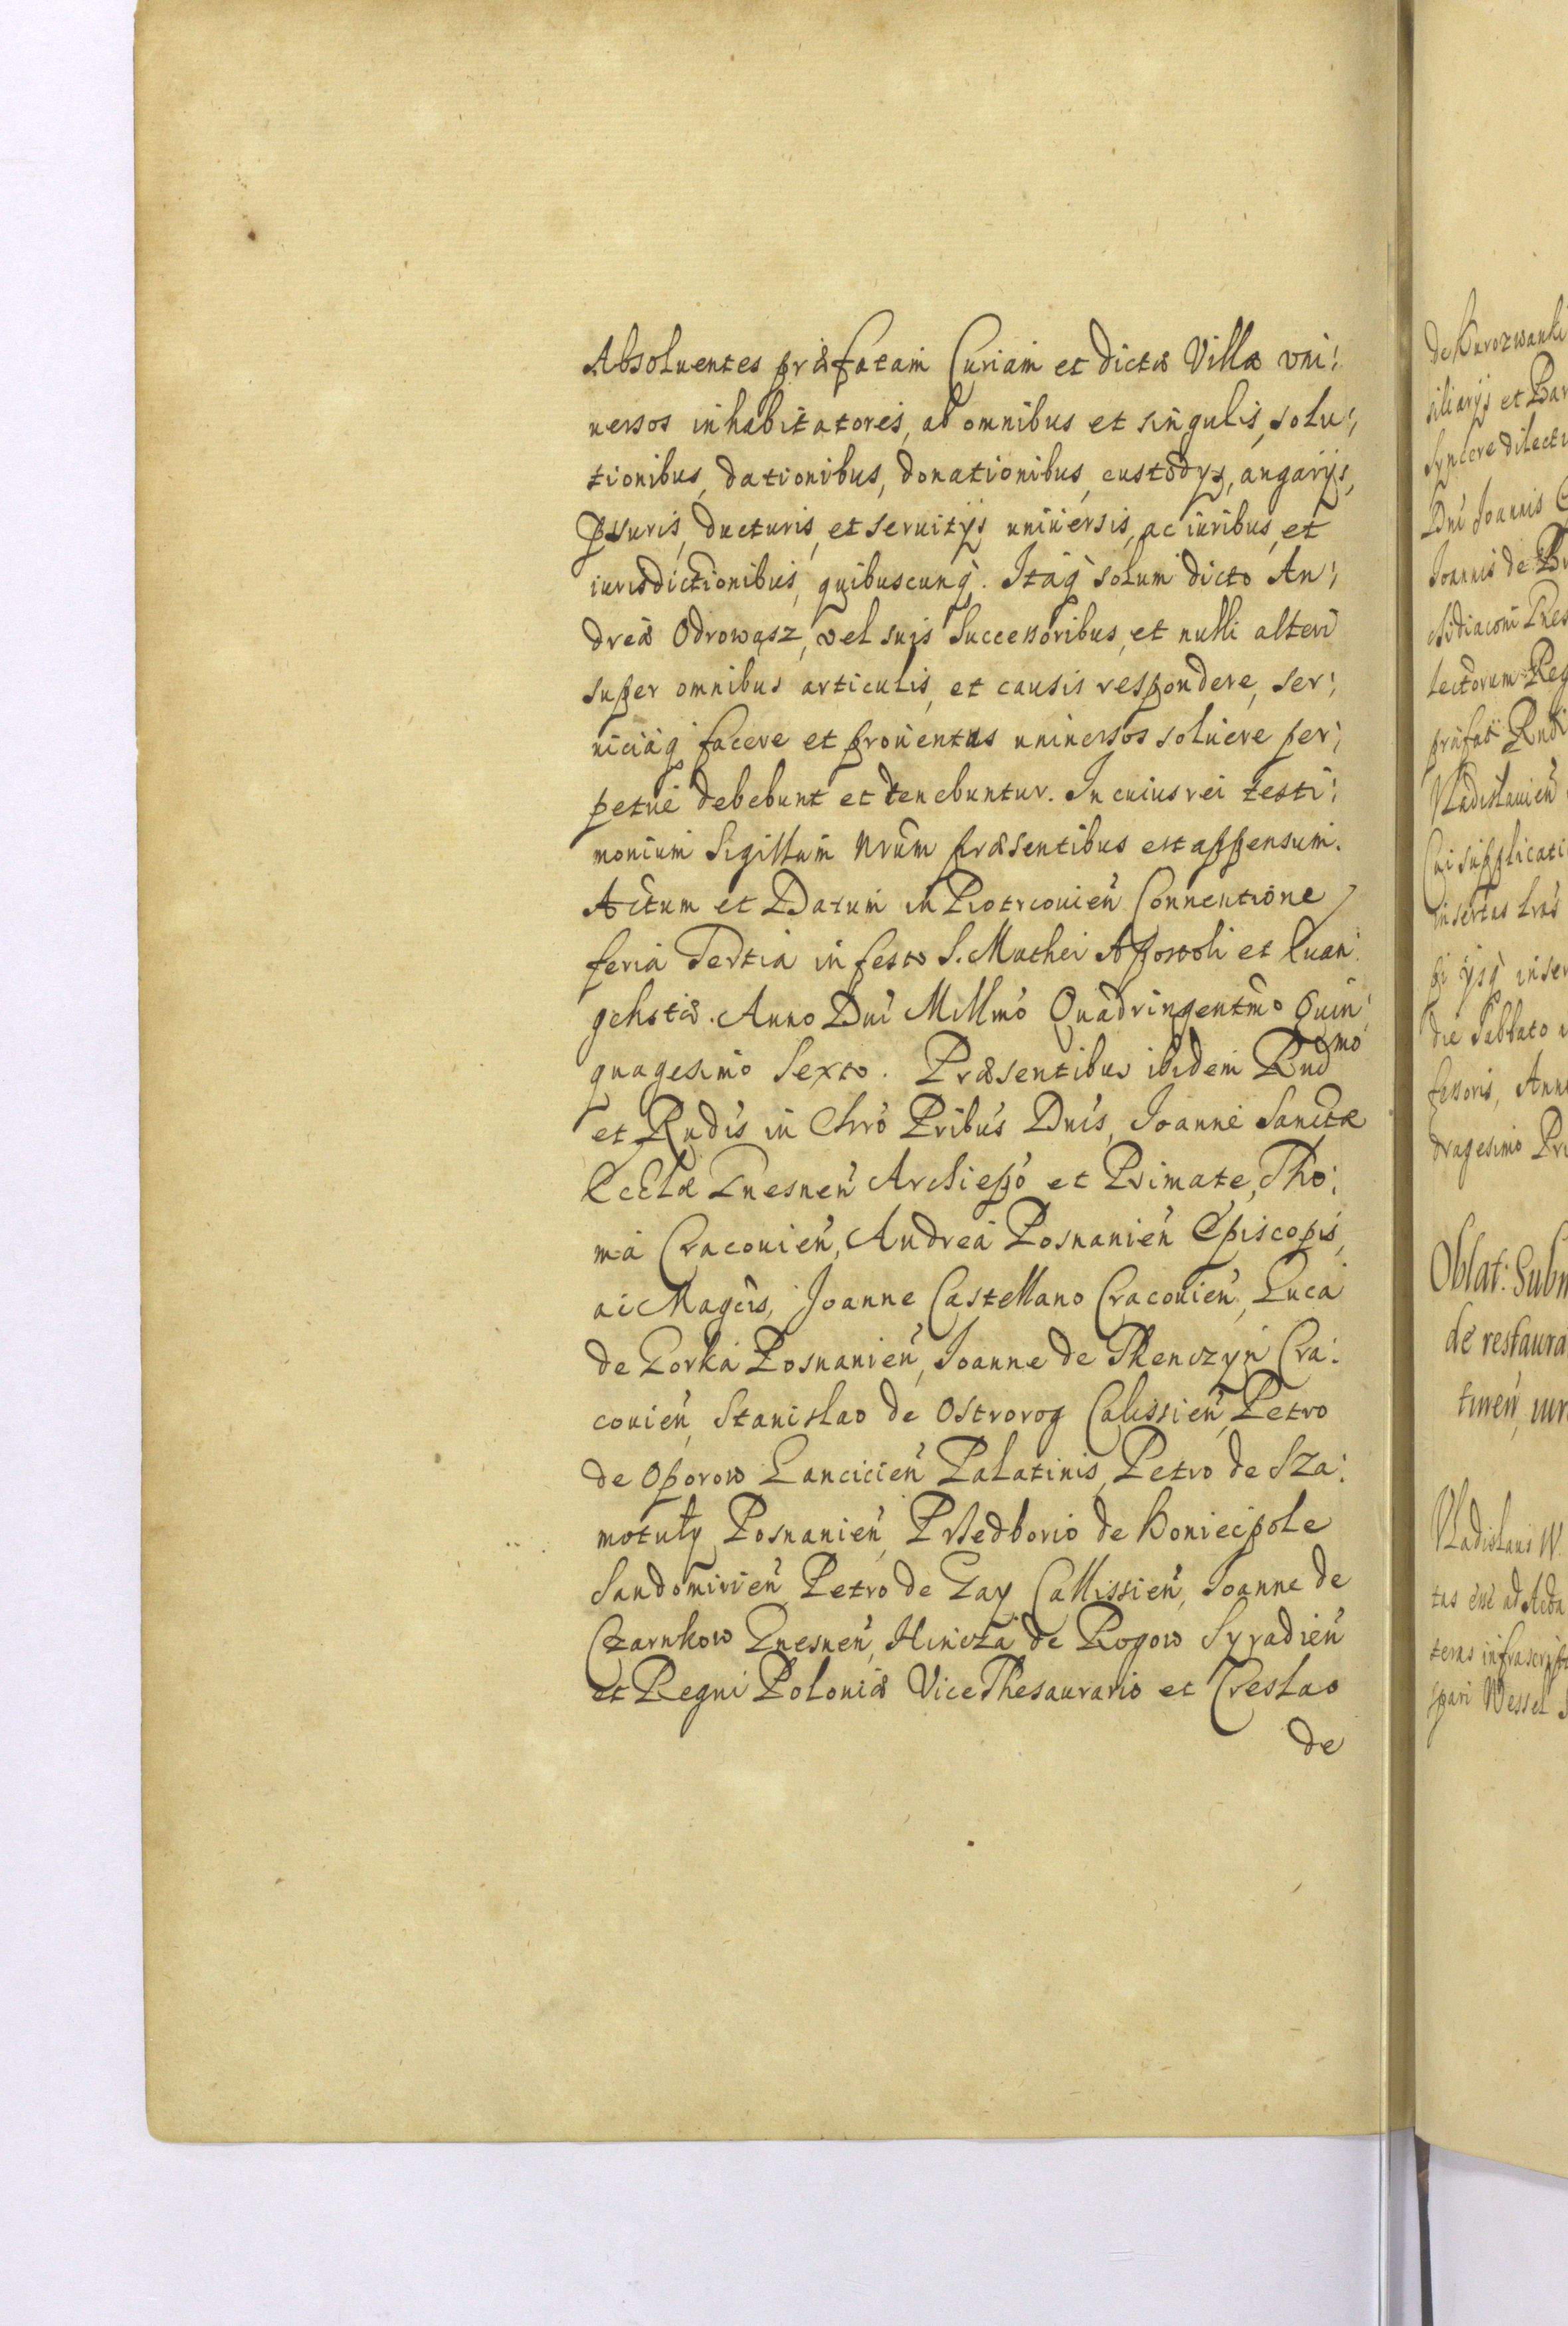 Absoluentes præfatam Curiam et dictæ Villæ vni:
uersos inhabitatores, ab omnibus et singulis, solu:
tionibus, dationibus, donationibus, custodys, angarijs,
ꝑsuris, ducturis, et seruitijs uniuersis, ac iuribus, et
iurisdictionibus, quibuscunq́. Itaq́ solum dicto An:
dreæ Odrowąsz, vel suis Successoribus, et nulli alteri
super omnibus articulis, et causis respondere, ser:
uiciaq́ facere et prouentus uniuersos soluere per:
petue debebunt et tenebuntur. In cuius rei testi:
monium Sigillum nrum præsentibus est appensum.
Actum et Datum in Piotrcouień Conuentione
feria Tertia in festo S. Mathei Apostoli et Euan:
gelistæ. Anno Dni Millmo Quadringentmo Quin:
quagesimo Sexto. Præsentibus ibidem Rndmo
et Rndis in Chro Pribus Dnis, Joanne Sanctæ
Ecclæ Gnesneń Archiepo et Primate, Tho:
ma Cracouień, Andrea Posnanień Episcopis,
ac Magcis, Joanne Castellano Cracouień, Luca
de Gorka Posnanień, Joanne de Thenczyn Cra:
couień, Stanislao de Ostrorog Calissień, Petro
de Oporow Lancicień Palatinis, Petro de Sza:
motuły Posnanień, Przedborio de Koniecpole
Sandomirień, Petro de Gay Callissień, Joanne de
Czarnkow Gnesneń, Hincza de Rogow Syradień
et Regni Poloniæ ViceThesaurario et Creslao
de
de Kurozwanki
siliarijs et Bar
Syncere dilecti
Dni Joannis
Joannis de
lectorum Reg
præfati Rndi
Vladislauień
Cui supplicati
insertas lras
die Sabbato
fessoris, Anno
dragesimo Pri
Oblat: Subm
de restaura
Vladislaus W
tas ene ad Acta
teras infrascript
spari Wessel